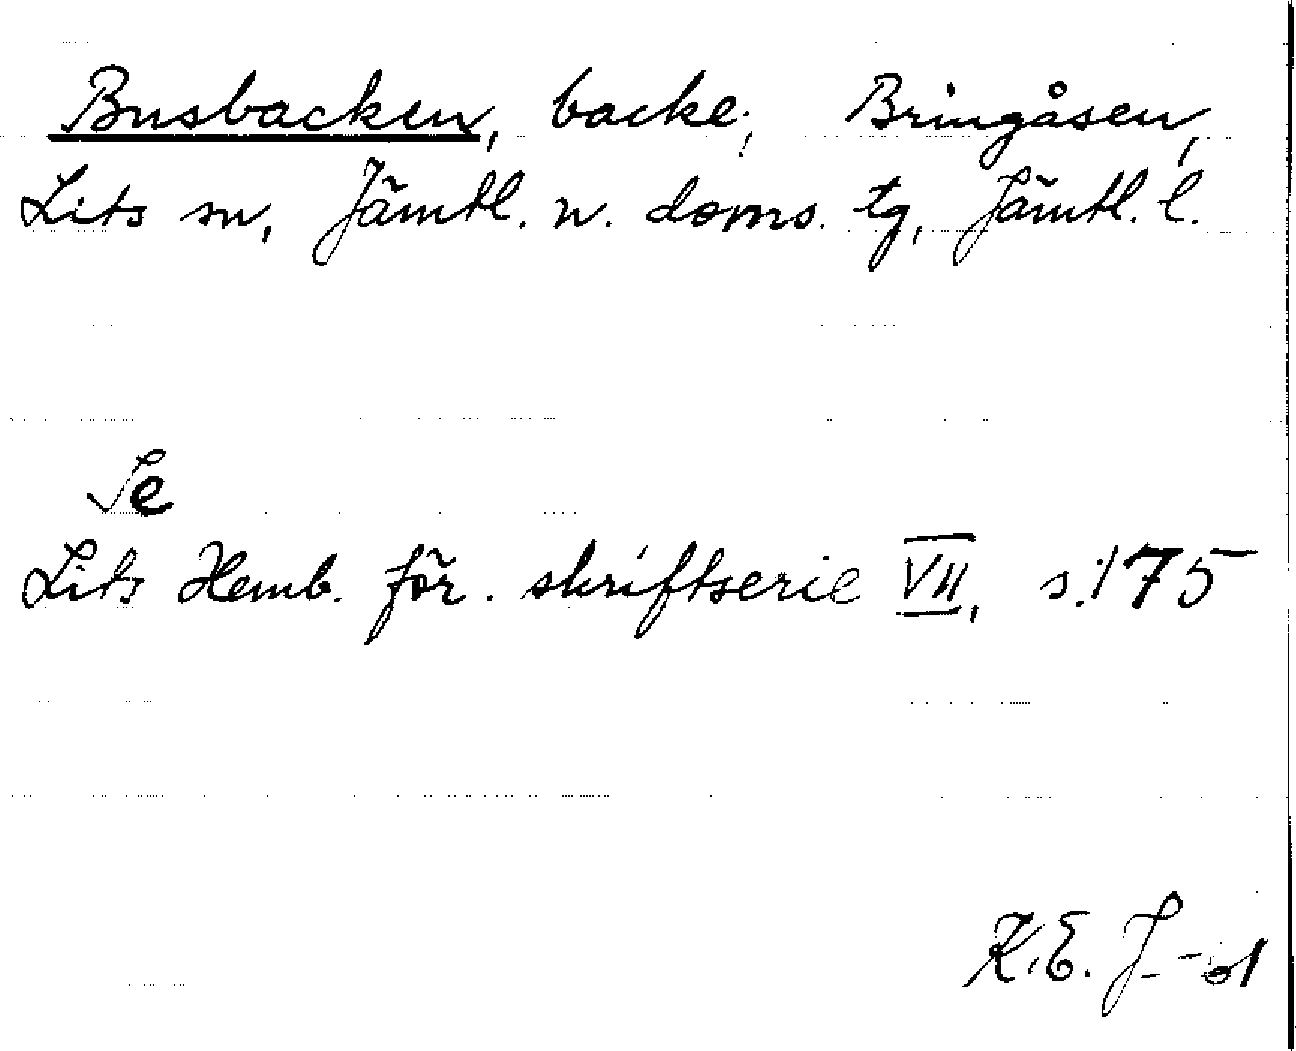 Busbacken, backe, Bringåsen,
Lits sn, Jämtl. n. doms. tg, Jämtl. l.
Se
Lits Hemb. för. skriftserie VII, s. 175
K.E. J-